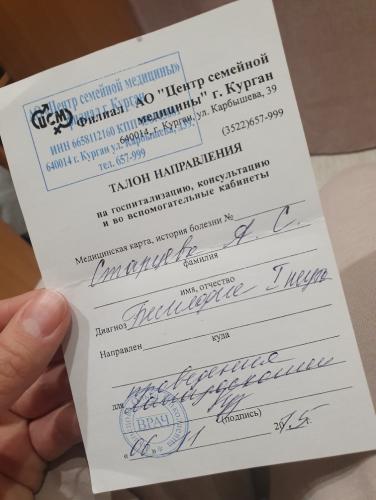 «Центр семейной медицины»
Филиал г. Курган
ИНН 6658112160 КПП
640014 г. Курган ул. Карбышева, 39.
тел. 657-999
ЦСМ
Филиал АО "Центр семейной
медицины" г. Курган
640014, г. Курган, ул. Карбышева, 39
(3522)657-999
ТАЛОН НАПРАВЛЕНИЯ
на госпитализацию, консультацию
и во вспомогательные кабинеты
Медицинская карта, история болезни №
Старцева А. С.
фамилия
имя, отчество
Диагноз Бесплодие I
Направлен
куда
проведения
для
ВРАЧ
(подпись)
" 06 " 11 2015.